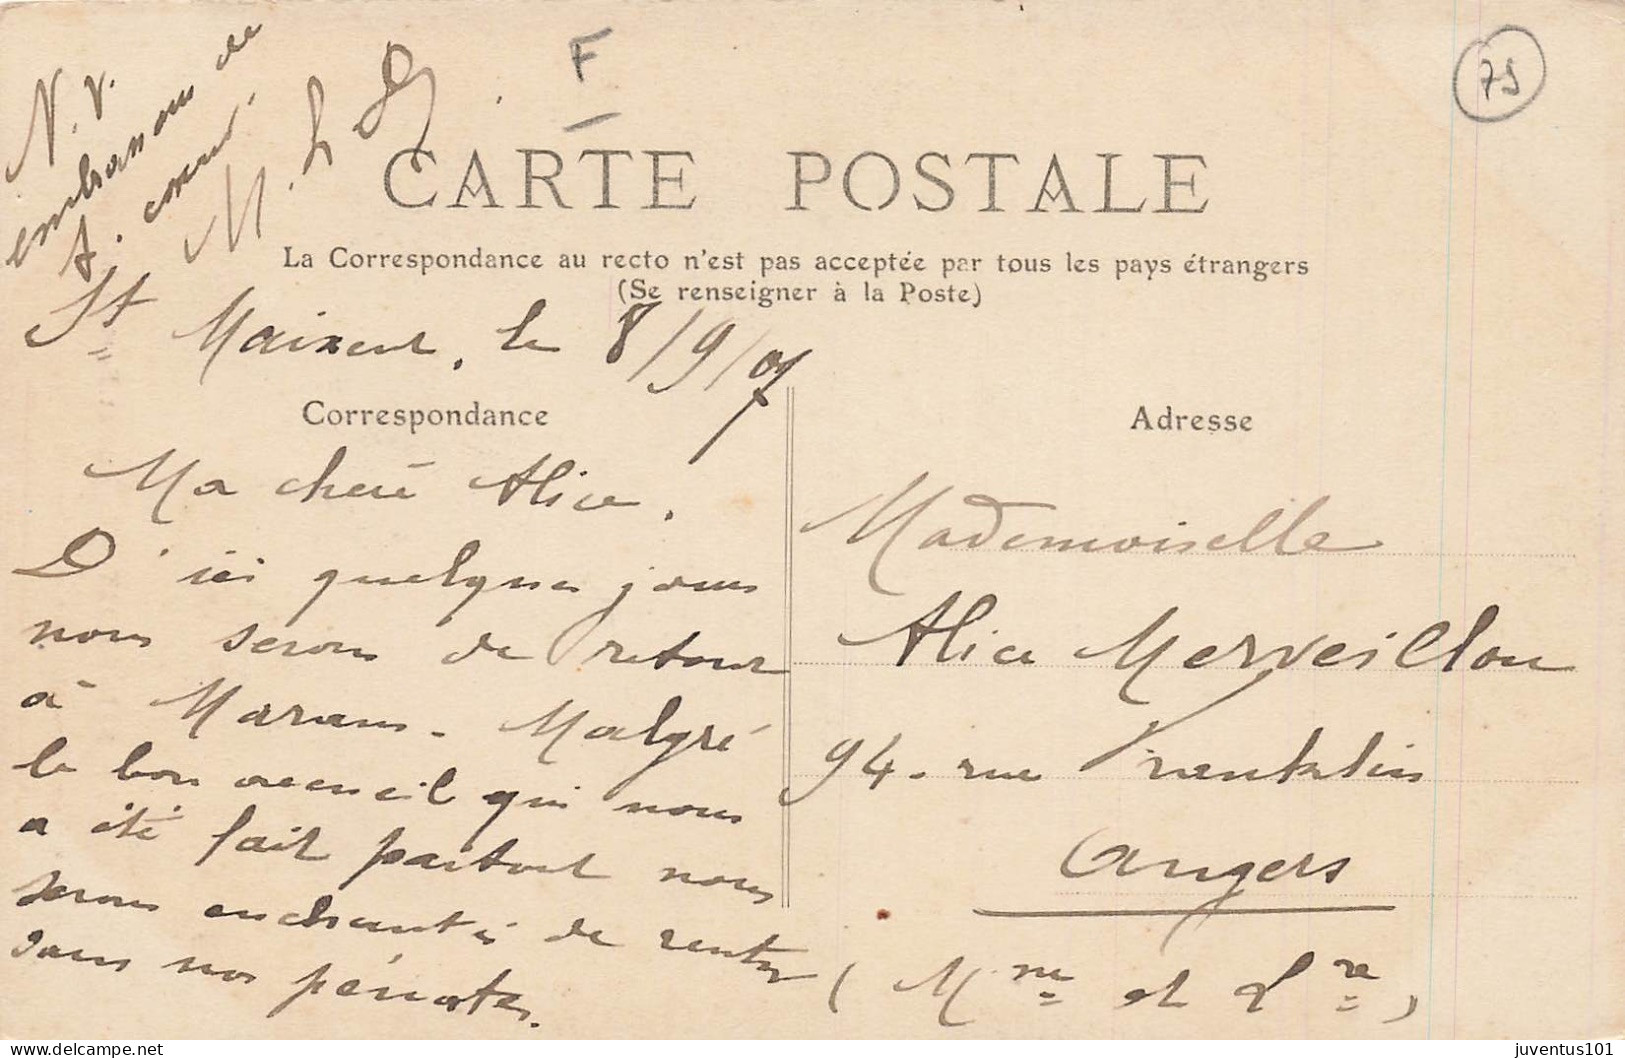 N. v.
embrassons de
t. cœur.
F
75
CARTE POSTALE
La Correspondance au recto n'est pas acceptée par tous les pays étrangers
(Se renseigner à la Poste)
St Maixent, le 8/9/07
Correspondance
Ma chère Alice,
D'ici quelques jours
nous serons de retour
à Marans. Malgré
le bon accueil qui nous
a été fait partout nous
serons enchantés de rentrer
dans nos pénates.
Adresse
Mademoiselle
Alice Merveillon
94. rue Franklin
Angers
(Mne et Lre)
juventus101